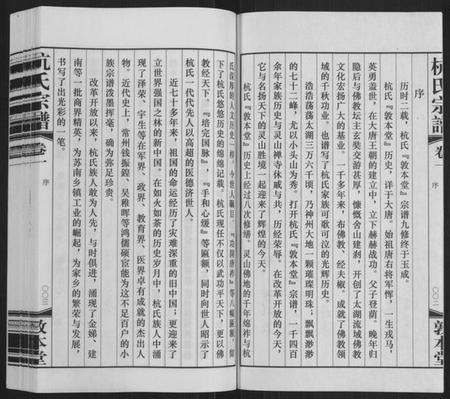 杭氏宗譜
卷一
序
敦本堂
序
历时二载，杭氏『敦本堂』宗谱九修终于玉成。
杭氏『敦本堂』历史，详于大唐，始祖唐右将军恽，一生戎马，
英勇盖世，在大唐王朝的建立中，立下赫赫战功。父子登荫。晚年归
隐后与佛教坛主玄奘交游甚厚，慷慨舍山建刹，开创了太湖流域佛教
文化宏扬广大的基业。一千多年来，布佛教，经大椒，成就了佛教领
域的千秋功业。也谱写了杭氏家族可歌可泣的光辉历史。
浩浩荡荡太湖三万六千顷，乃神州大地一颗璀璨明珠；飘飘渺渺
的七十二峰，尤以小头山为秀。打开杭氏『敦本堂』宗谱，一千四百
余年家族历史与灵山禅寺休戚与共，历经荣辱。在改革开放的今天，
它与名扬天下的灵山胜境一起迎来了辉煌的今天。
杭氏『敦本堂』历史上经过八次修缮。灵山佛地的千年绵祚与杭
下了杭氏悠悠历史的绵绵记载。杭氏现任不仅以武功平天下，更以佛
教经天下。『培完国脉』、『手和心缓』等匾额，同时向世人昭示了
杭氏一代代先人以高超的医德济世人。
近七十多年来，祖国的命运经历了灾难深重的旧中国；更迎来了
立世界强国之林的新中国。在如火如荼的历史岁月中，杭氏族人中涌
现了泽荣、宇生等在军界、政界、教育界、医界卓有成就的杰出人
物。近代史上，常州钱振锽、吴稚晖等鸿儒硕宦能为这不足百户的小
族宗谱泼墨挥毫，确为弥足珍贵。
改革开放以来，杭氏族人敢为人先，与时俱进，涌现了金娣、建
南等一批商界精英。为苏南乡镇工业的崛起，为家乡的繁荣与发展，
书写了出光彩的一笔。
杭氏宗譜
卷一
序
敦本堂